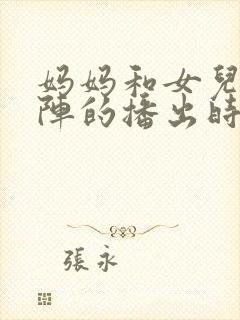 妈妈和女兒
陣的播出時
張永